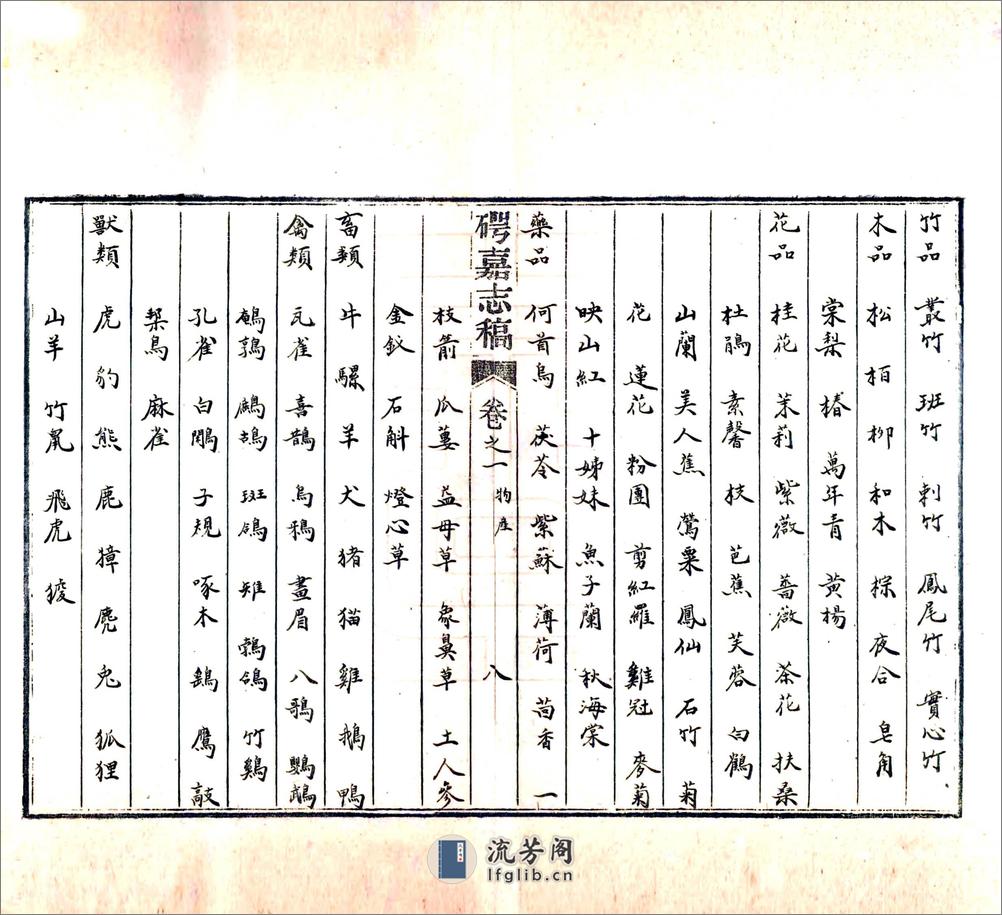 竹品 叢竹 班竹 刺竹 鳳尾竹 實心竹
木品 松 栢 柳 和木 棕 夜合 皂角
棠梨 椿 萬年青 黄楊
花品 桂花 茉莉 紫薇 薔薇 茶花 扶桑
杜鵑 素馨 枝 芭蕉 芙蓉 白鶴
山蘭 美人蕉 鶯粟 鳳仙 石竹 菊
花 蓮花 粉團 剪紅羅 雞冠 麥菊
映山紅 十姊妹 魚子蘭 秋海棠
藥品 何首烏 茯苓 紫蘇 薄荷 茴香 一
碍嘉志稿 卷之一 物産 八
枝箭 瓜蔞 益母草 象鼻草 土人參
金釵 石斛 燈心草
畜類 牛 騾 羊 犬 猪 猫 雞 鵝 鴨
禽類 瓦雀 喜鵲 烏鴉 畫眉 八哥 鸚鵡
鵪鶉 鷓鴣 斑鳩 雉 鵓鴿 竹鷄
孔雀 白鷴 子規 啄木 鷂 鷹 敲
梨鳥 麻雀
獸類 虎 豹 熊 鹿 獐 麂 兎 狐狸
山羊 竹鼠 飛虎
流芳阁
lfglib.cn